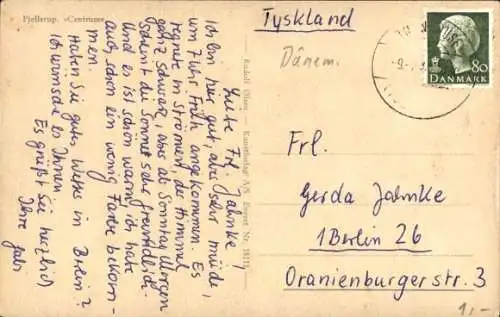 Fjellerup. »Centrum«
Liebe Frl. Jahnke!
Ich bin hier gut, aber sehr müde,
um 7 Uhr Früh angekommen. Es
regnete in Strömen, der Himmel
ganz schwarz, aber ab Sonntag Morgen
scheint die Sonne sehr freundlich
und es ist schön warm, ich habe
auch schon ein wenig Farbe bekom-
men.
Haben Sie gutes Wetter in Berlin?
Ich wünsche es Ihnen
Es grüßt Sie herzlich
Ihre
Rudolf Olsens Kunstforlag A/S. Eneret Nr.
Tyskland
Dänem.
80
DANMARK
Frl.
Gerda Jahnke
1 Berlin 26
Oranienburgerstr. 3
1,-